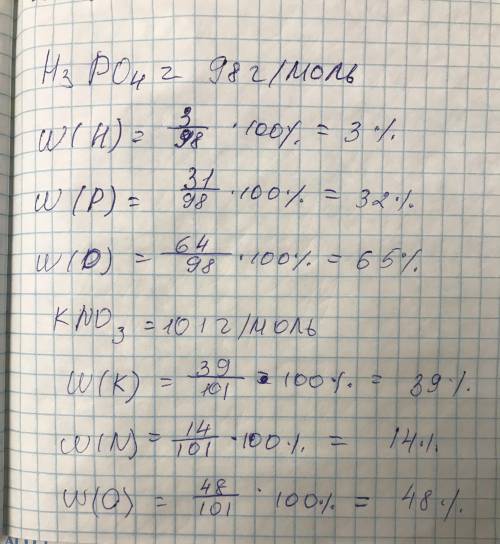 H₃PO₄ = 98 г/моль
W(H) = 3/98 · 100% = 3%
W(P) = 31/98 · 100% = 32%
W(O) = 64/98 · 100% = 65%
KNO₃ = 101 г/моль
W(K) = 39/101 · 100% = 39%
W(N) = 14/101 · 100% = 14%
W(O) = 48/101 · 100% = 48%